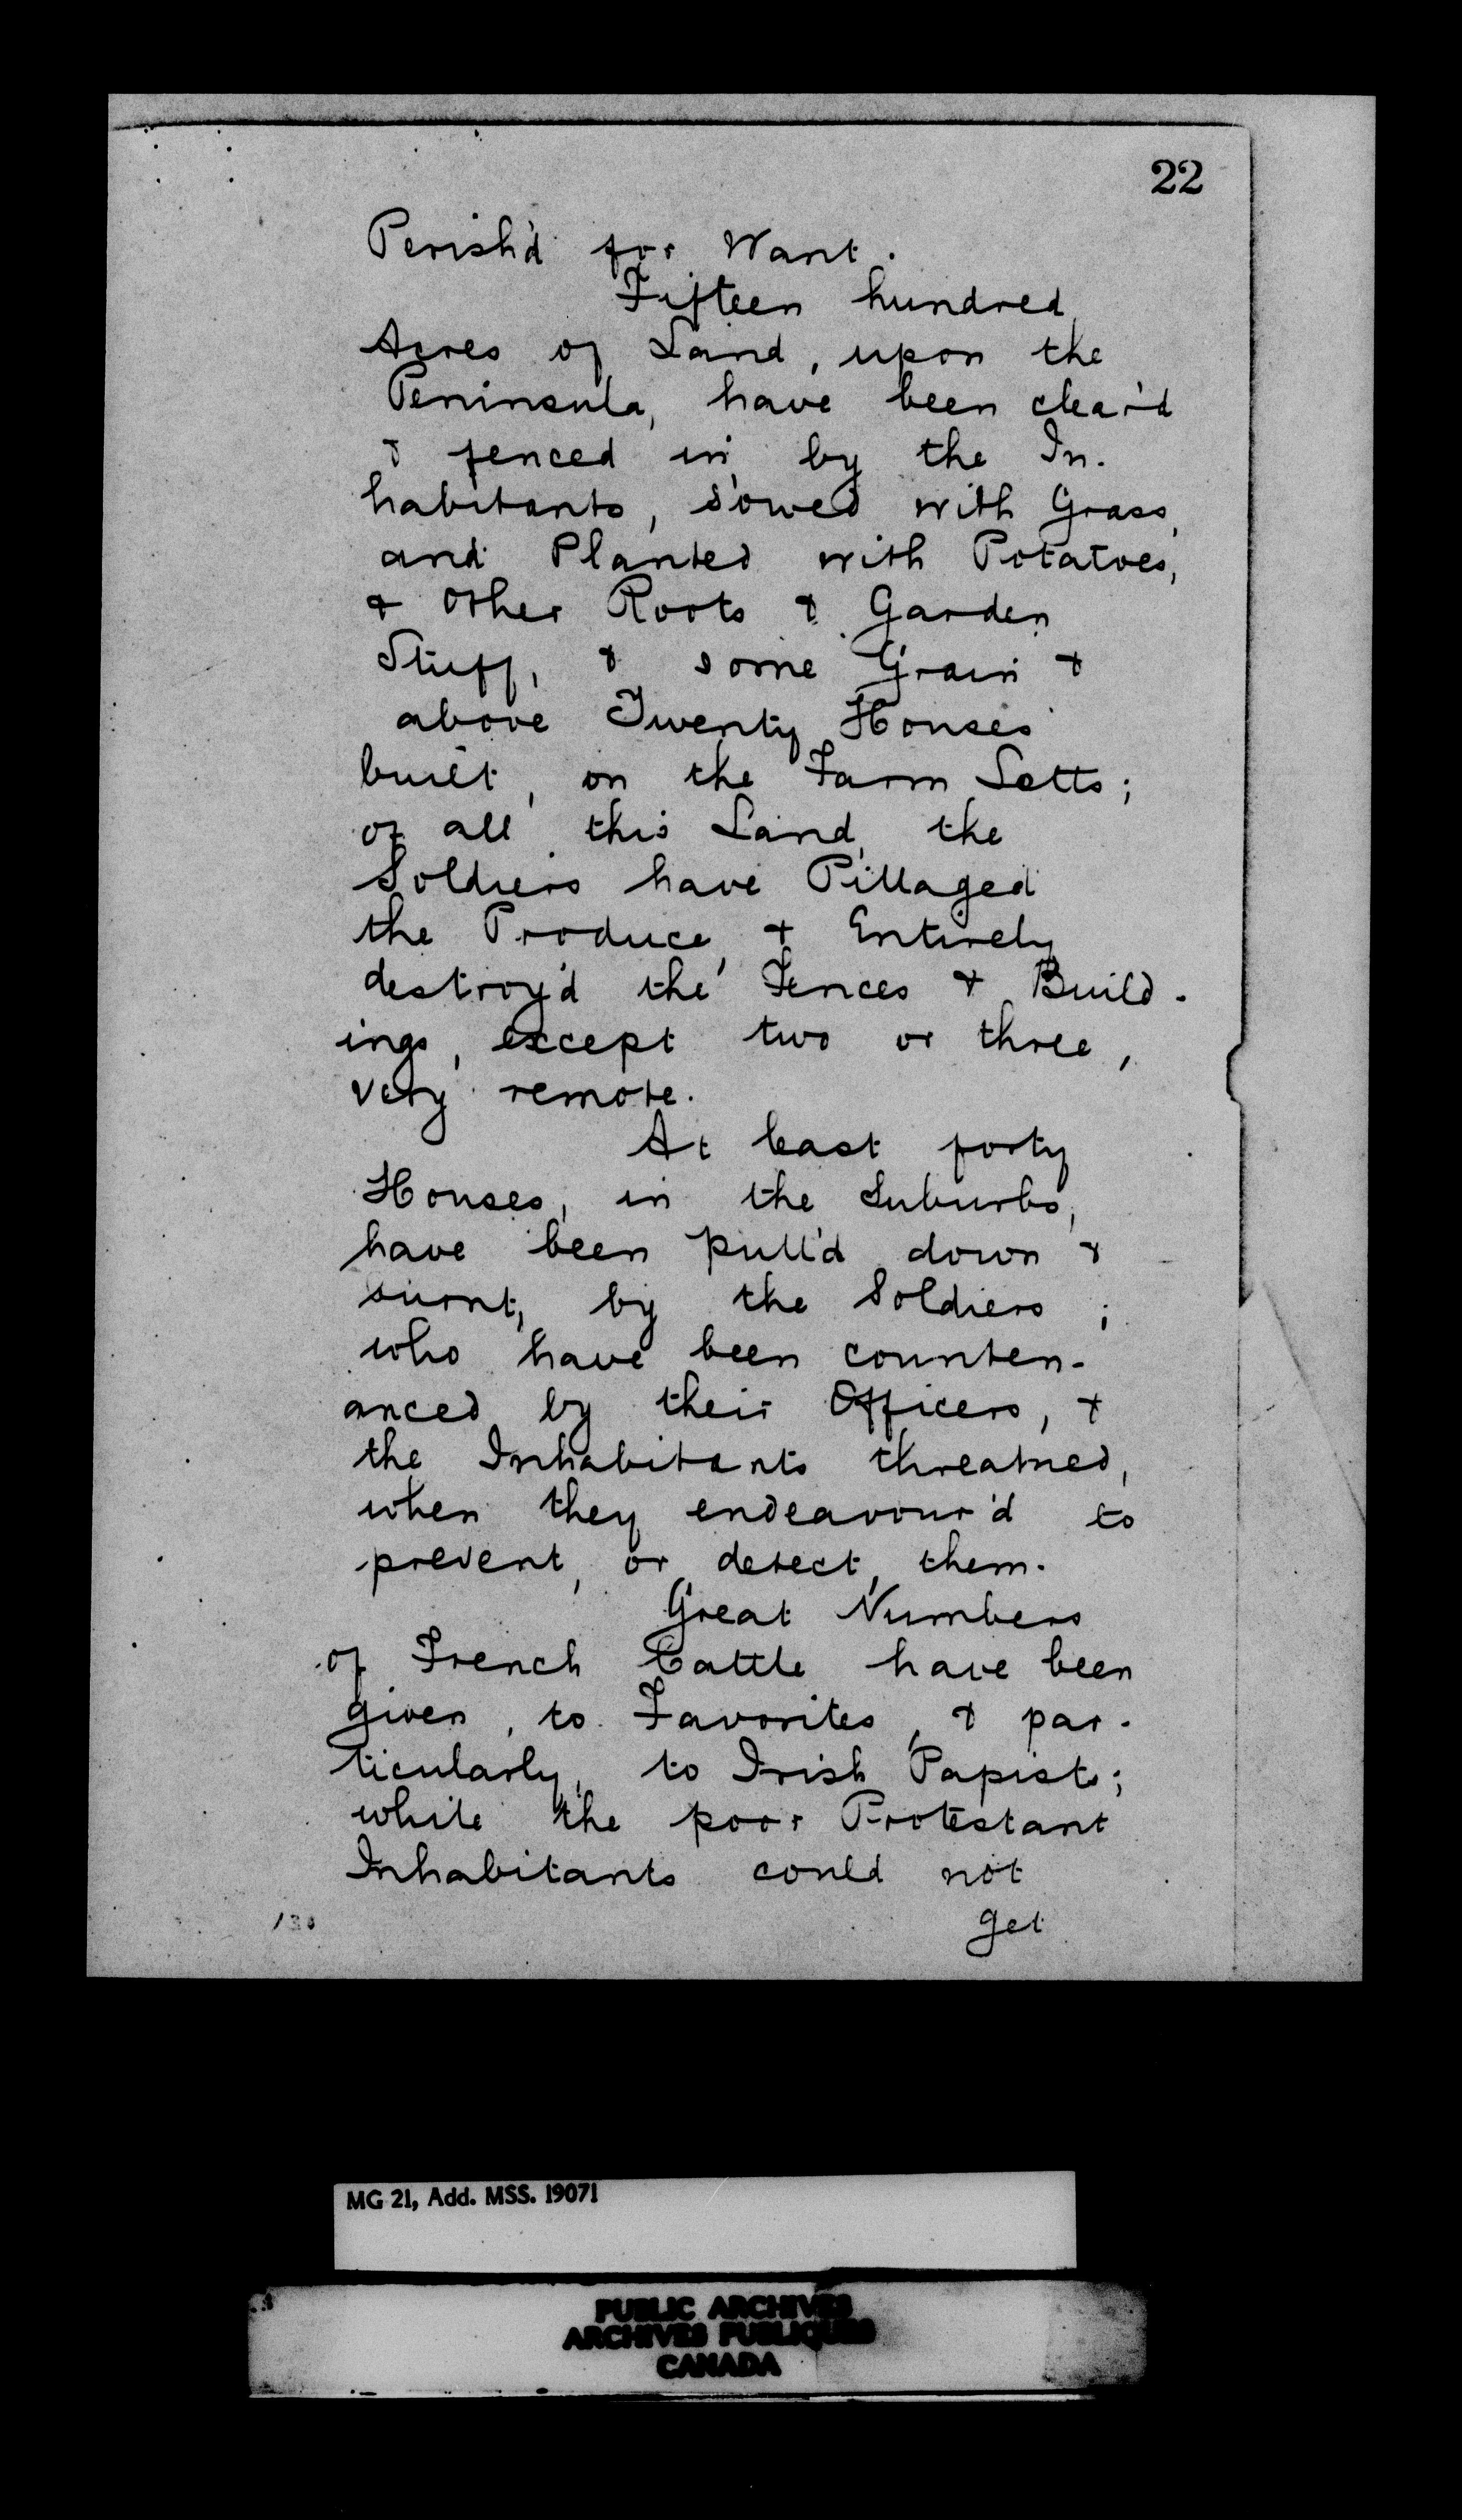 22
Perish'd for Want.
Fifteen hundred
Acres of Land, upon the
Peninsula, have been clear'd
& fenced in, by the In-
habitants, sowed with Grass,
and Planted with Potatoes,
& Other Roots & Garden
Stuff, & some Grain &
above Twenty Houses
built, on the Farm Lotts;
of all this Land, the
Soldiers have Pillaged
the Produce, & Entirely
destroy'd the Fences & Build-
ings, except two or three,
very remote.
At least forty
Houses, in the Suburbs,
have been pull'd down &
burnt, by the Soldiers;
who have been counten-
anced by their Officers, &
the Inhabitants threatned,
when they endeavour'd to
prevent, or detect, them.
Great Numbers
of French Cattle have been
given, to Favorites, & par-
ticularly, to Irish Papists;
while the poor Protestant
Inhabitants could not
get
MG 21, Add. MSS. 19071
PUBLIC ARCHIVES
ARCHIVES PUBLIQUES
CANADA